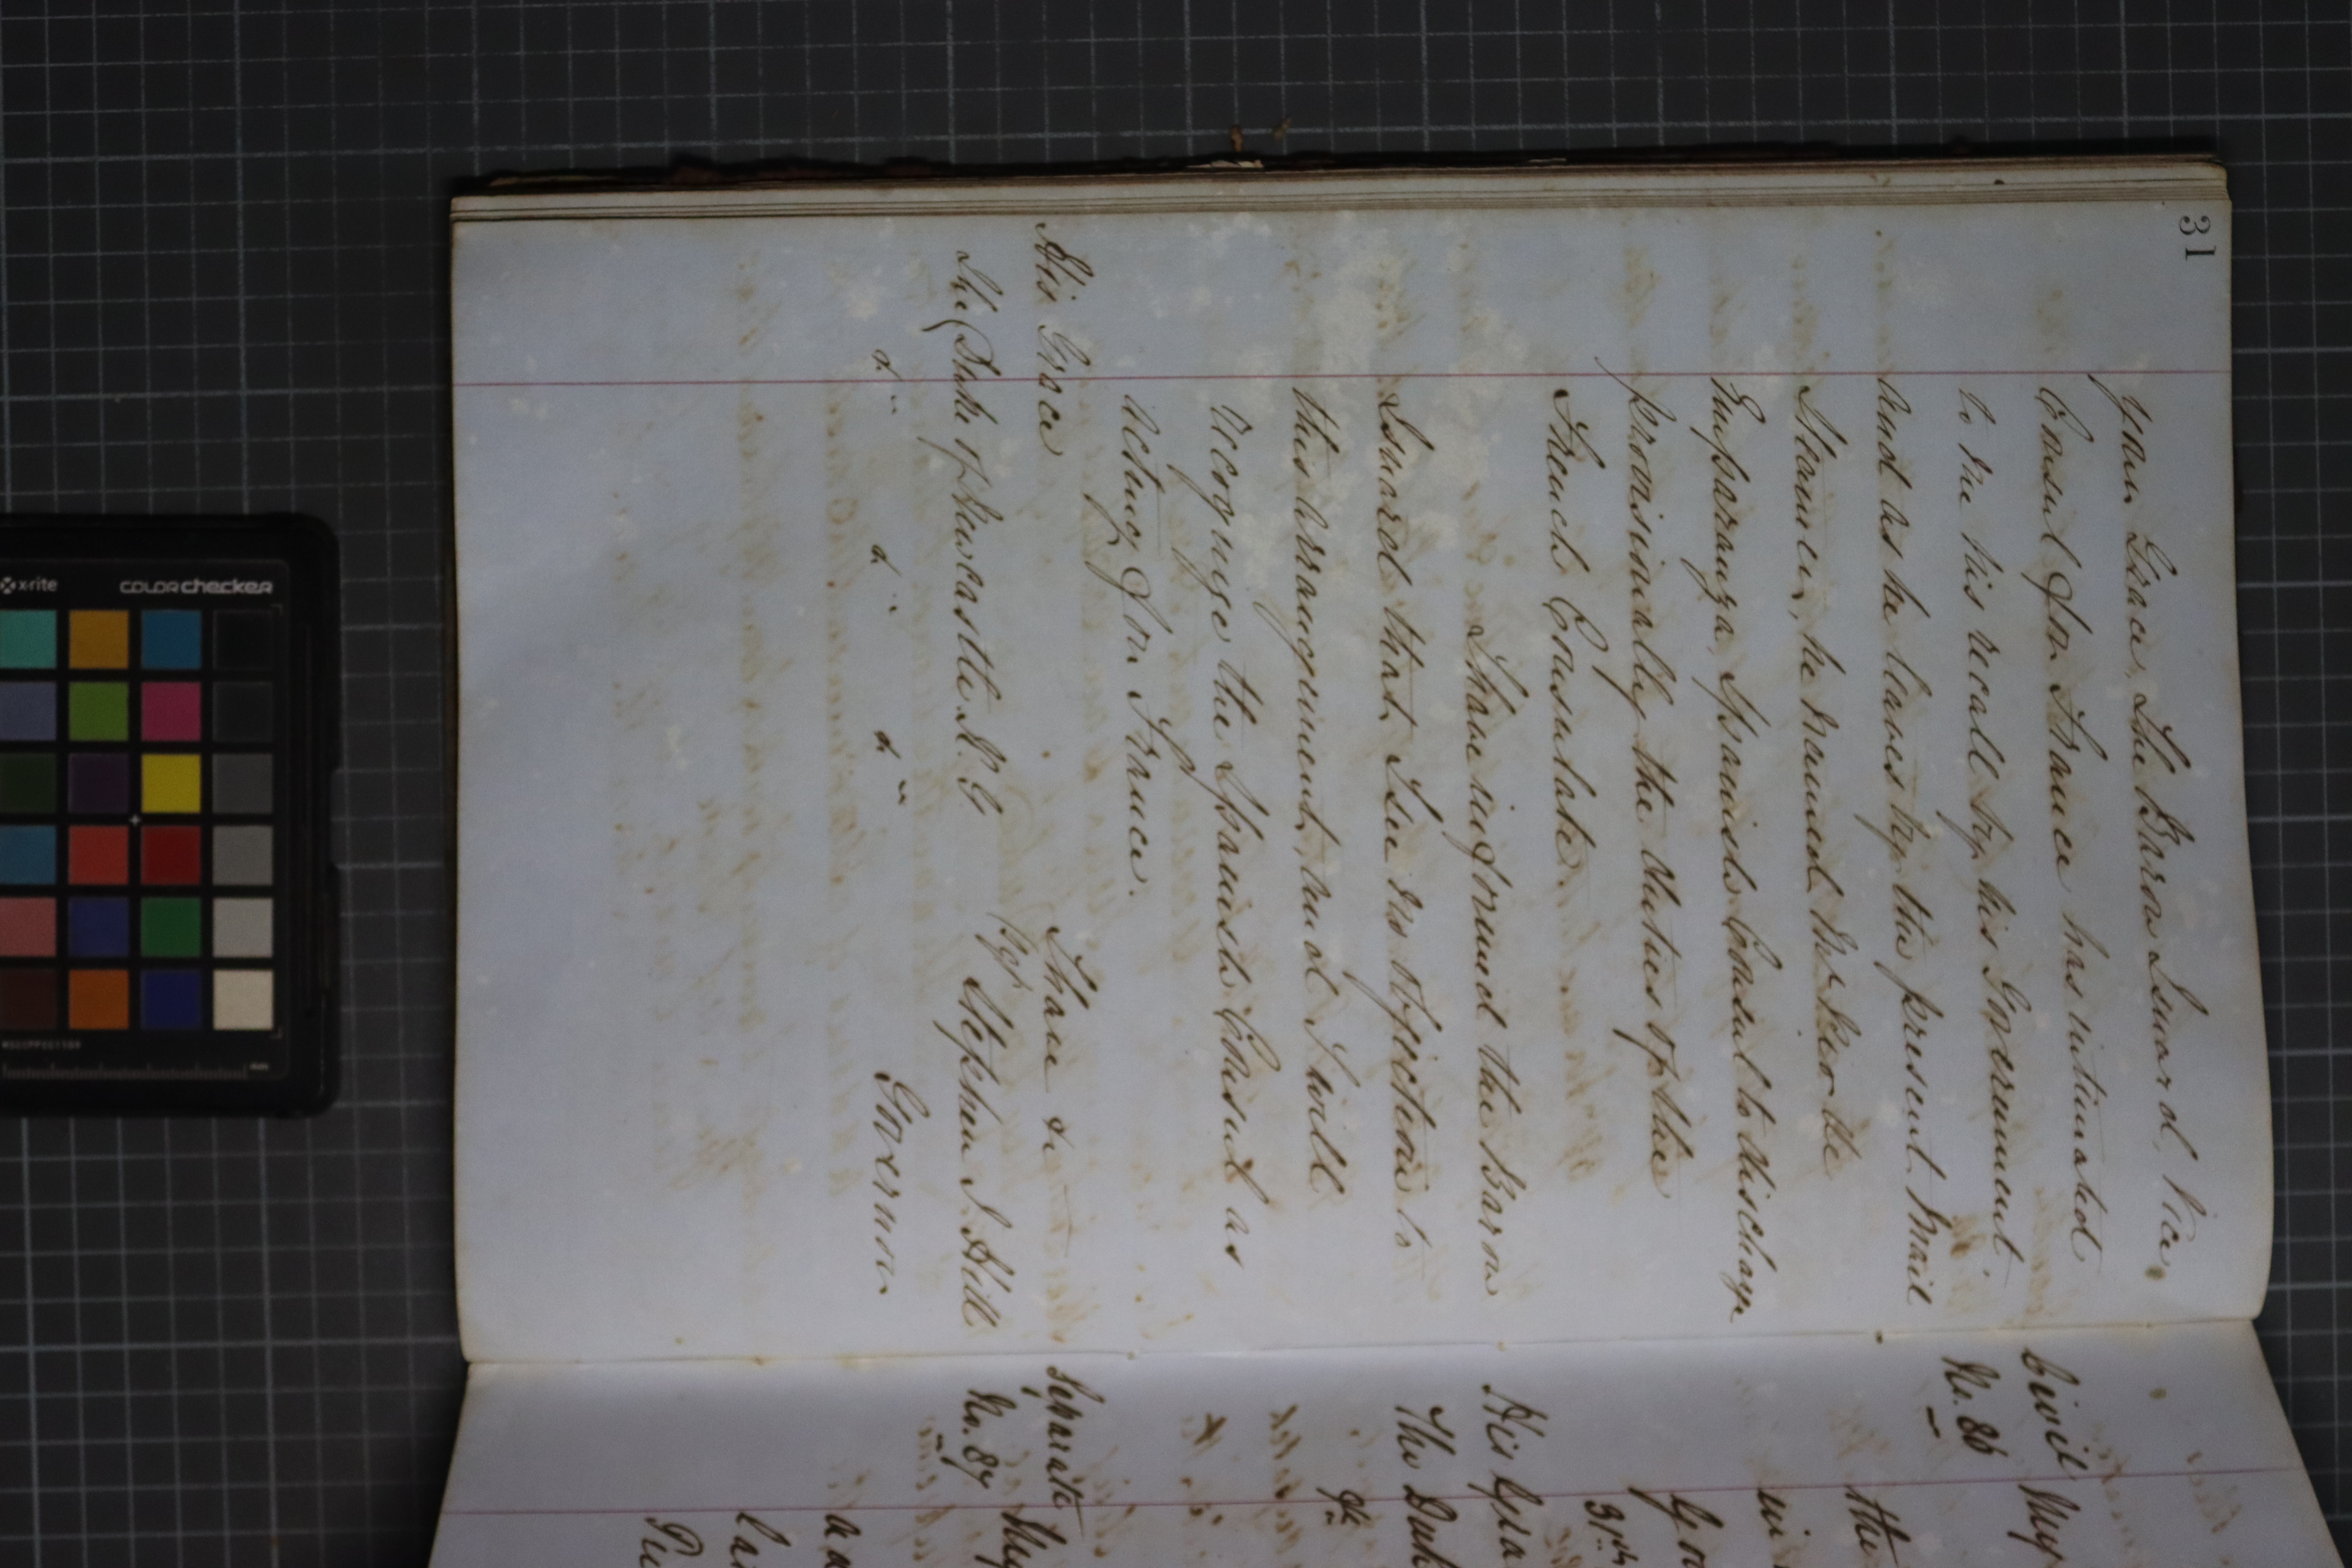 31
your Grace, The Baron Isnard, Vice
Consul for France has intimated
to me his recall by his Government
And as he leaves by the present Mail
Steamer, he named Mr de
Emparanza, Spanish Consul to discharge
provisionally the duties of the
French Consulate.
I have informed the Baron
Isnard that I see no objection to
this arrangement, and I will
recognize the Spanish Consul as
acting for France.
I have &c
His Grace
Sgd Stephen J. Hill
The Duke of Newcastle K.G
Governor
&c &c &c
Civil
No. 86
My
the
31st
His Grac
The Duk
&c
Separate
No. 87
x-rite
colorchecker
mm